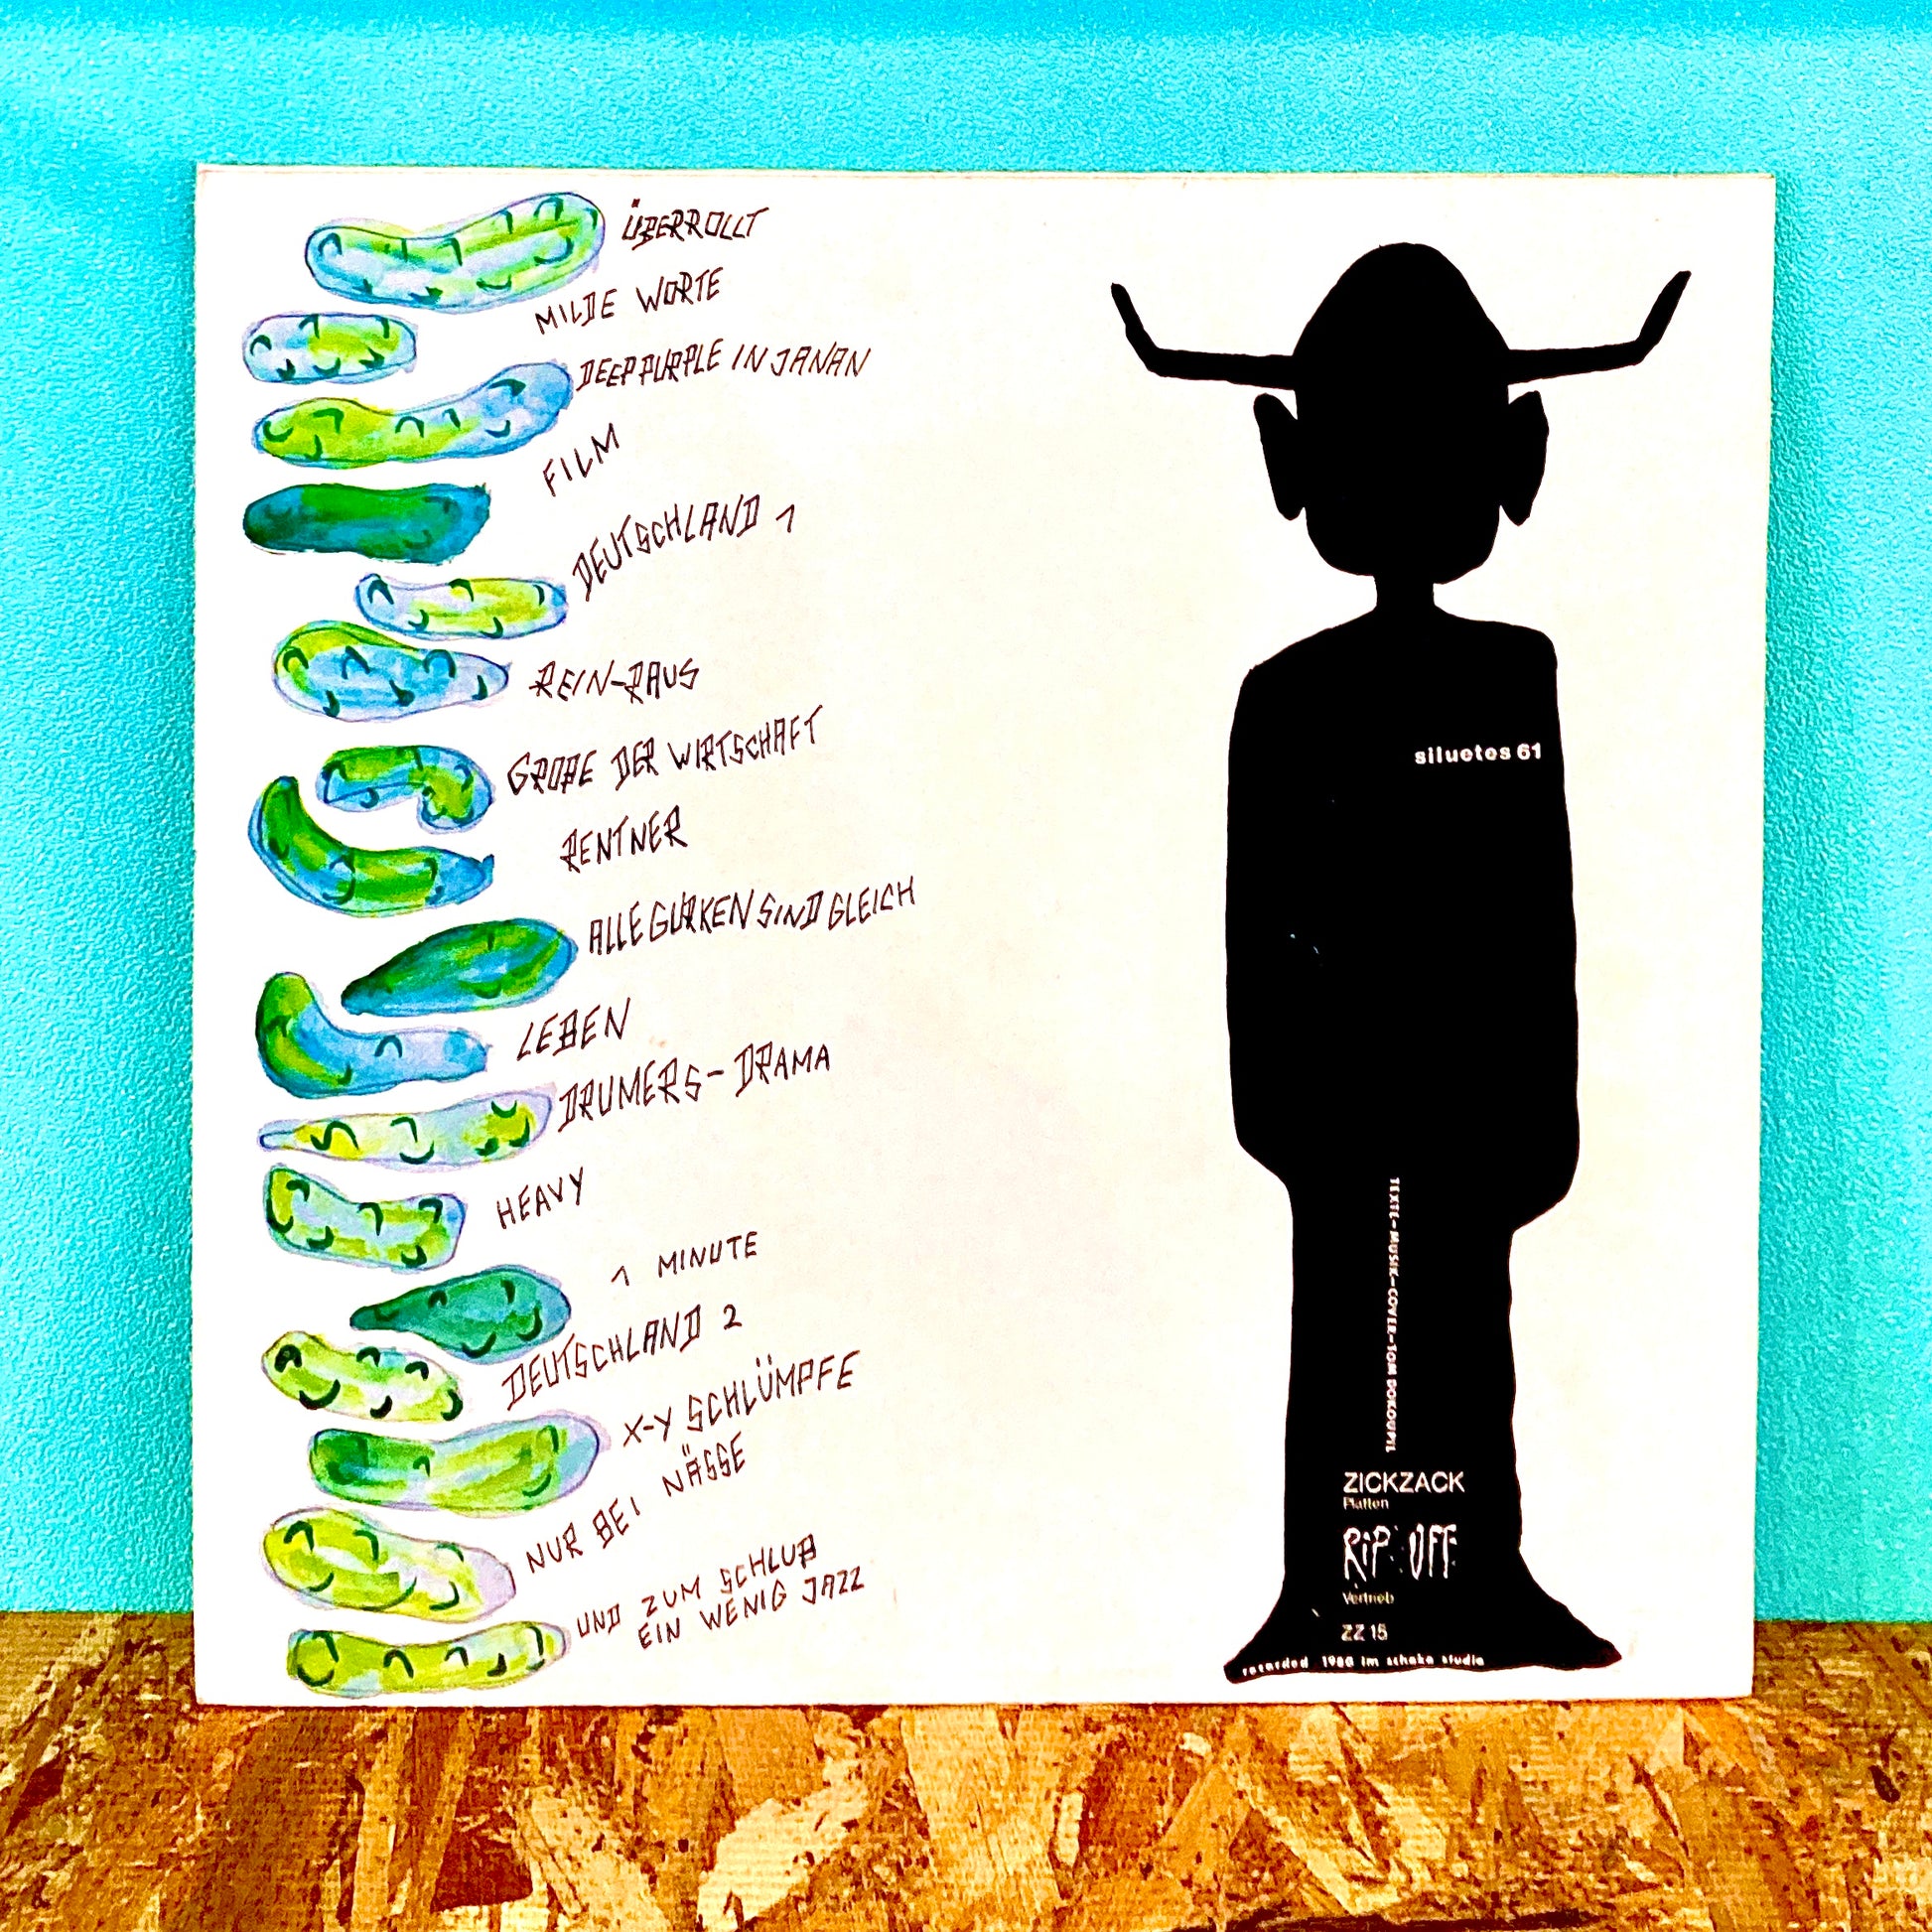 ÜBERROLLT
MILDE WORTE
DEEP PURPLE IN JANAN
FILM
DEUTSCHLAND 1
REIN-RAUS
GROBE DER WIRTSCHAFT
RENTNER
ALLE GURKEN SIND GLEICH
LEBEN
DRUMERS-DRAMA
HEAVY
1 MINUTE
DEUTSCHLAND 2
X-Y SCHLÜMPFE
NUR BEI NÄSSE
UND ZUM SCHLUß
EIN WENIG JAZZ
siluetes 61
TEXTE-MUSIK-COVER-TOM DOKOUPIL
ZICKZACK
Platten
RIP OFF
Vertrieb
ZZ 15
recorded 1980 im schaka studio